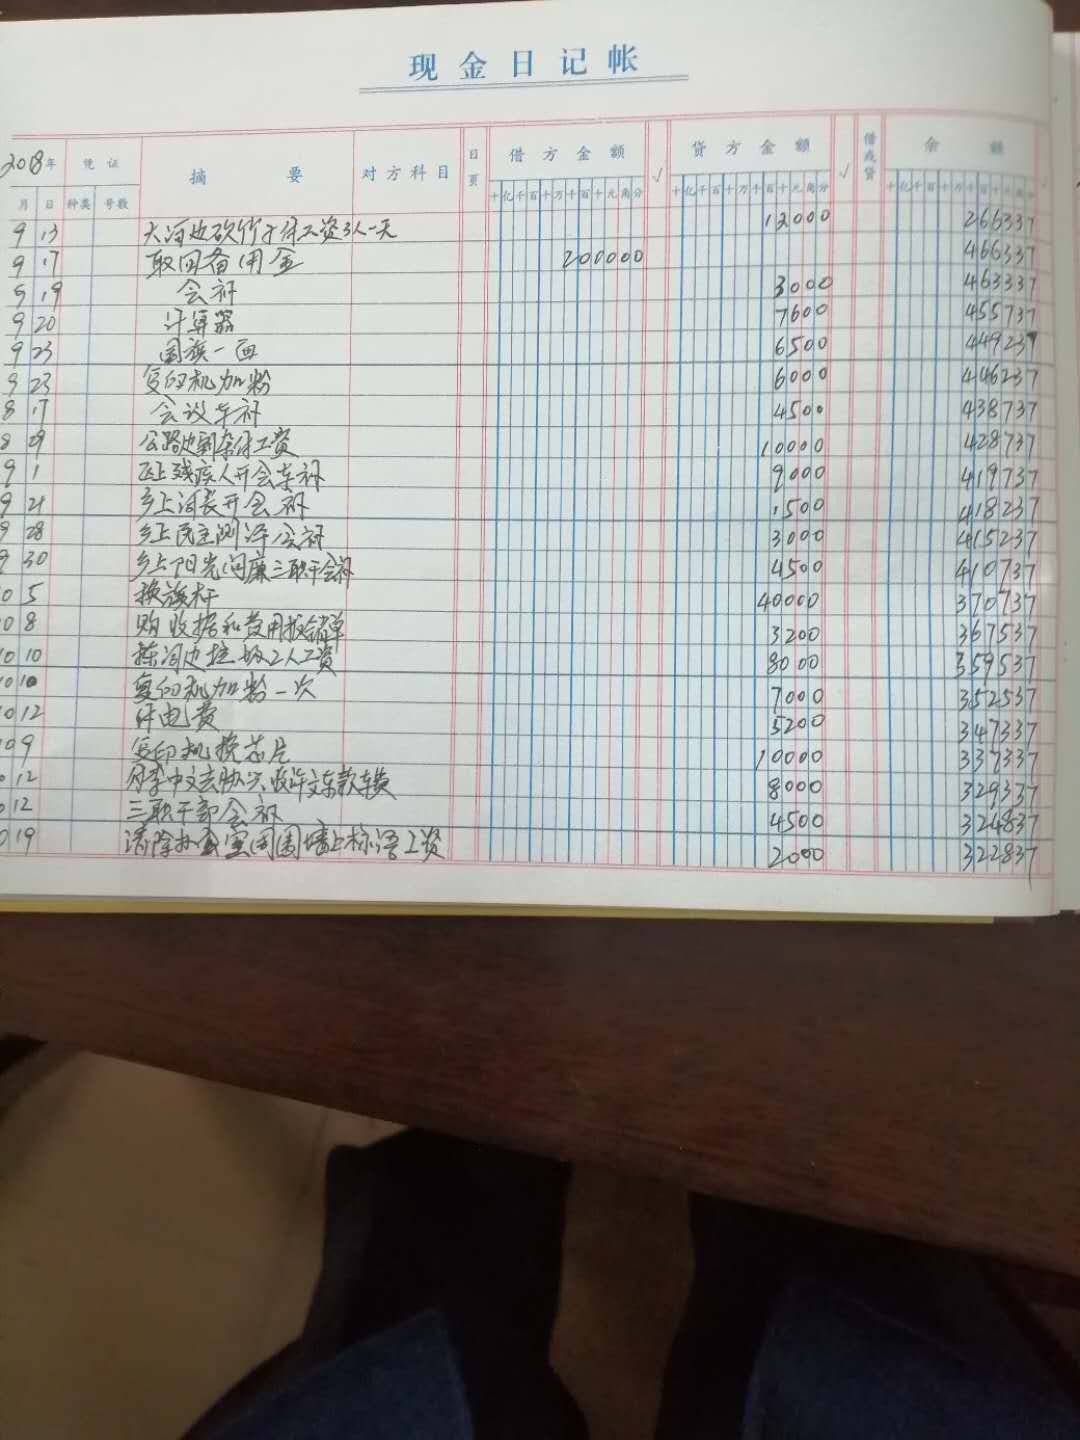 现金日记帐
2018年 凭证 摘要 对方科目 日页 借方金额 √ 贷方金额 √ 借或贷 余额 √
月 日 种类 号数 十亿千百十万千百十元角分 十亿千百十万千百十元角分 十亿千百十万千百十元角分
9 13 大河边砍竹子 工资3人一天 12000 266337
9 17 取回备用金 200000 466337
9 19 会补 3000 463337
9 20 计算器 7600 455737
9 23 国旗一面 6500 449237
9 23 复印机加粉 6000 446237
8 17 会议车补 4500 438737
8 29 公路边割杂 工资 10000 428737
9 1 残疾人开会车补 9000 419737
9 21 乡上河长开会补 1500 418237
9 28 乡上民主测评会补 3000 415237
9 30 乡上阳光问廉三职干会补 4500 410737
10 5 换旗杆 40000 370737
10 8 购收据和费用报销单 3200 367537
10 10 拣河边垃圾2人工资 8000 359537
10 10 复印机加粉一次 7000 352537
10 12 付电费 5200 347337
10 9 复印机换芯片 10000 337337
10 12 车费 8000 329337
10 12 三职干部会补 4500 324837
10 19 清除办公室周围墙上标语工资 2000 322837